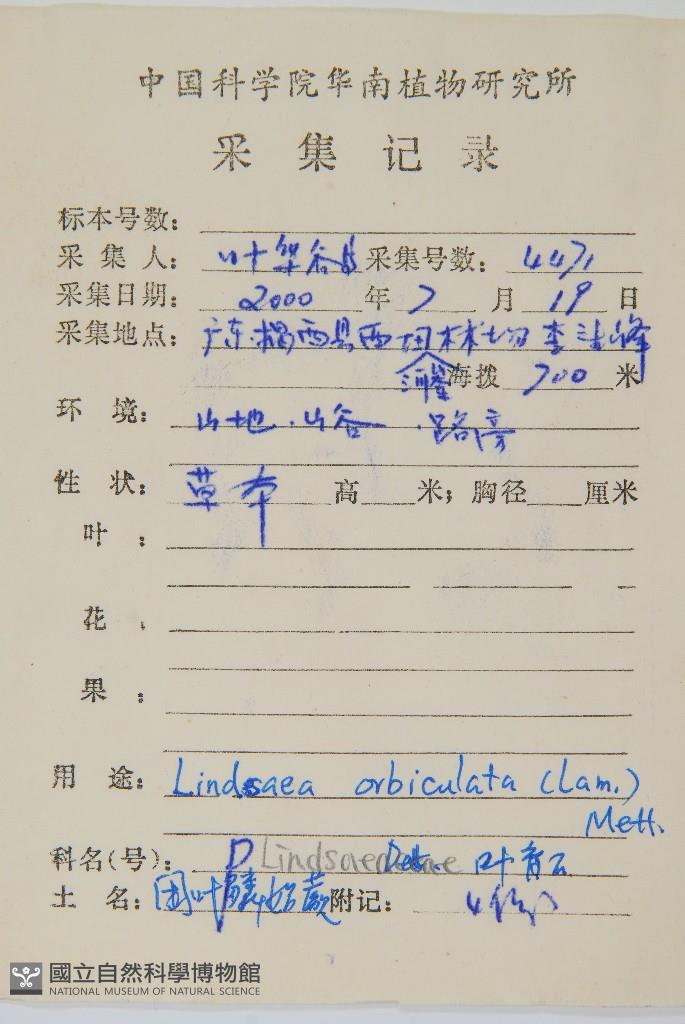 中国科学院华南植物研究所
采集记录
标本号数：
采集人：叶华谷 采集号数：4471
采集日期：2000年7月19日
采集地点：广东.揭西县西田林场李洁峰
海拨700米
环境：山地.山谷.路旁
性状：草本 高 米；胸径 厘米
叶：
花
果：
用途：Lindsaea orbiculata (Lam.)
Mett.
科名(号)：P Lindsaeaceae Det. 叶育石
土名：团叶鳞始蕨 附记：4份
國立自然科學博物館
NATIONAL MUSEUM OF NATURAL SCIENCE